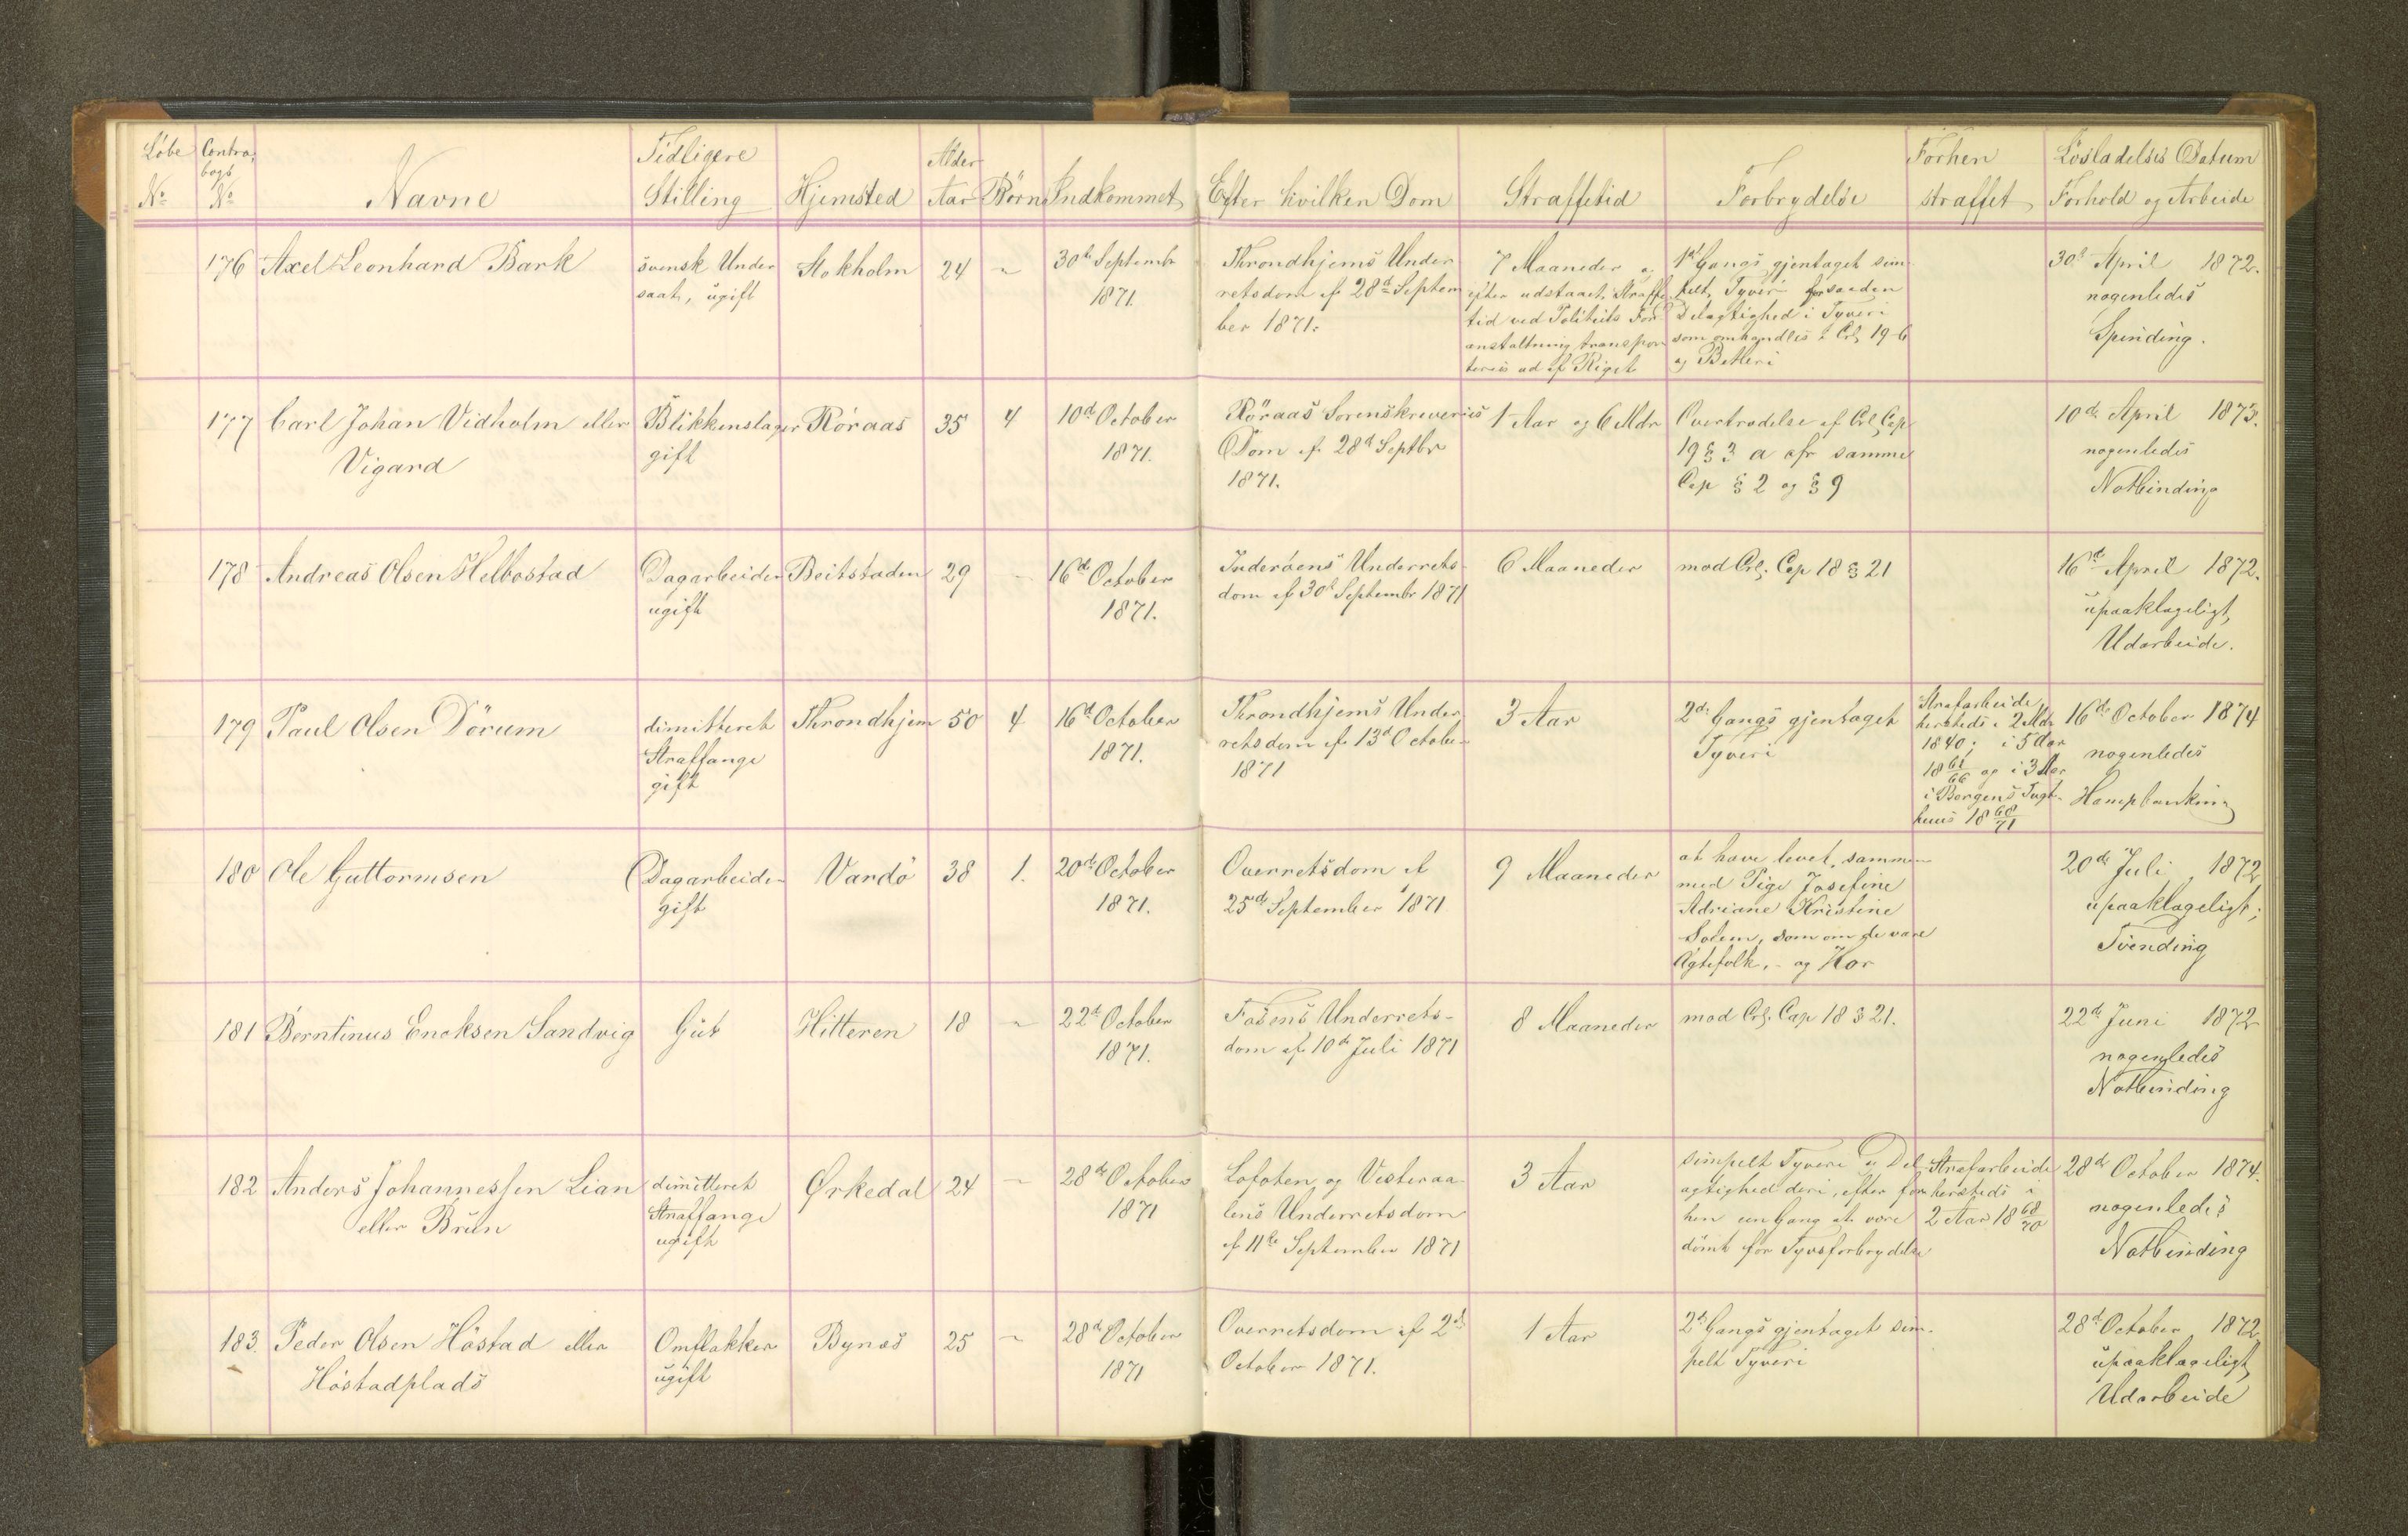 Löbe
No
Contra
bogs
No
Navne
Tidligere
Stilling
Hjemsted
Alder
Aar
Börn
Indkommet
Efter hvilken Dom
Straffetid
Forbrydelse
Forhen
straffet
Lösladelses Datum
Forhold og Arbeide
176
Axel Leonhard Bark
svensk Under
saat, ugift
Stokholm
24
-
30te Septembr
1871.
Throndhjems Under
retsdom af 28de Septem
ber 1871.
7 Maaneder og
efter udstaaet Straffe
tid ved Politiets For
anstaltning transpor
teres ud af Riget
1ste Gangs gjentaget sim
pelt Tyveri saadan
Delagtighed i Tyveri
som omhandles i Crl. 19-6
og Betleri
30te April 1872.
nogenledes
Spinding.
177
Carl Johan Vidholm eller
Vigard
Blikkenslager
gift
Röraas
35
4
10de October
1871.
Röraas Sorenskriveries
Dom af 28de Septbr
1871.
1 Aar og 6 Mdr
Overtrædelse af Crl. Cap
19 § 3 a cfr samme
Cap § 2 og § 9
10de April 1873.
nogenledes
Notbinding
178
Andreas Olsen Helbostad
Dagarbeider
ugift
Beitstaden
29
-
16de October
1871.
Inderöens Underrets-
dom af 30te Septembr 1871
6 Maaneder
mod Crl. Cap 18 § 21
16de April 1872.
upaaklageligt,
Udarbeide.
179
Paul Olsen Dörum
dimitteret
Straffange
gift
Throndhjem
50
4
16de October
1871.
Throndhjems Under
retsdom af 13de October
1871
3 Aar
2den Gangs gjentaget
Tyveri
Strafarbeide
hersteds i 2 Mdr
1840; i 5 Aar
1861/66 og i 3 Aar
i Bergens Tugt-
huus 1868/71
16de October 1874
nogenledes
Hampbanking
180
Ole Guttormsen
Dagarbeider
gift
Vardö
38
1.
20de October
1871.
Overretsdom af
25de September 1871
9 Maaneder
at have levet sammen
med Pige Josefine
Adriane Kristine
Solem, som om de vare
Ægtefolk, - og Hor
20de Juli 1872
upaaklageligt;
Tvinding
181
Berntinus Enoksen Sandvig
Gut
Hitteren
18
-
22de October
1871.
Fosens Underrets-
dom af 10de Juli 1871
8 Maaneder
mod Crl. Cap 18 § 21.
22de Juni 1872
nogenledes
Notbinding
182
Anders Johannessen Lian
eller Brun
dimitteret
Straffange
ugift
Ørkedal
24
-
28de October
1871
Lofoten og Vesteraa-
lens Underretsdom
af 11te September 1871
3 Aar
simpelt Tyveri og Del-
agtighed deri, efter for
hen een Gang at være
dömt for Tyvsforbrydelse
Strafarbeide
hersteds i
2 Aar 1868/70
28de October 1874.
nogenledes
Notbinding
183.
Peder Olsen Höstad eller
Höstadplads
Omflakker
ugift
Bynæs
25
-
28de October
1871
Overretsdom af 2de
October 1871.
1 Aar
2den Gangs gjentaget sim-
pelt Tyveri
28de October 1872
upaaklageligt,
Udarbeide